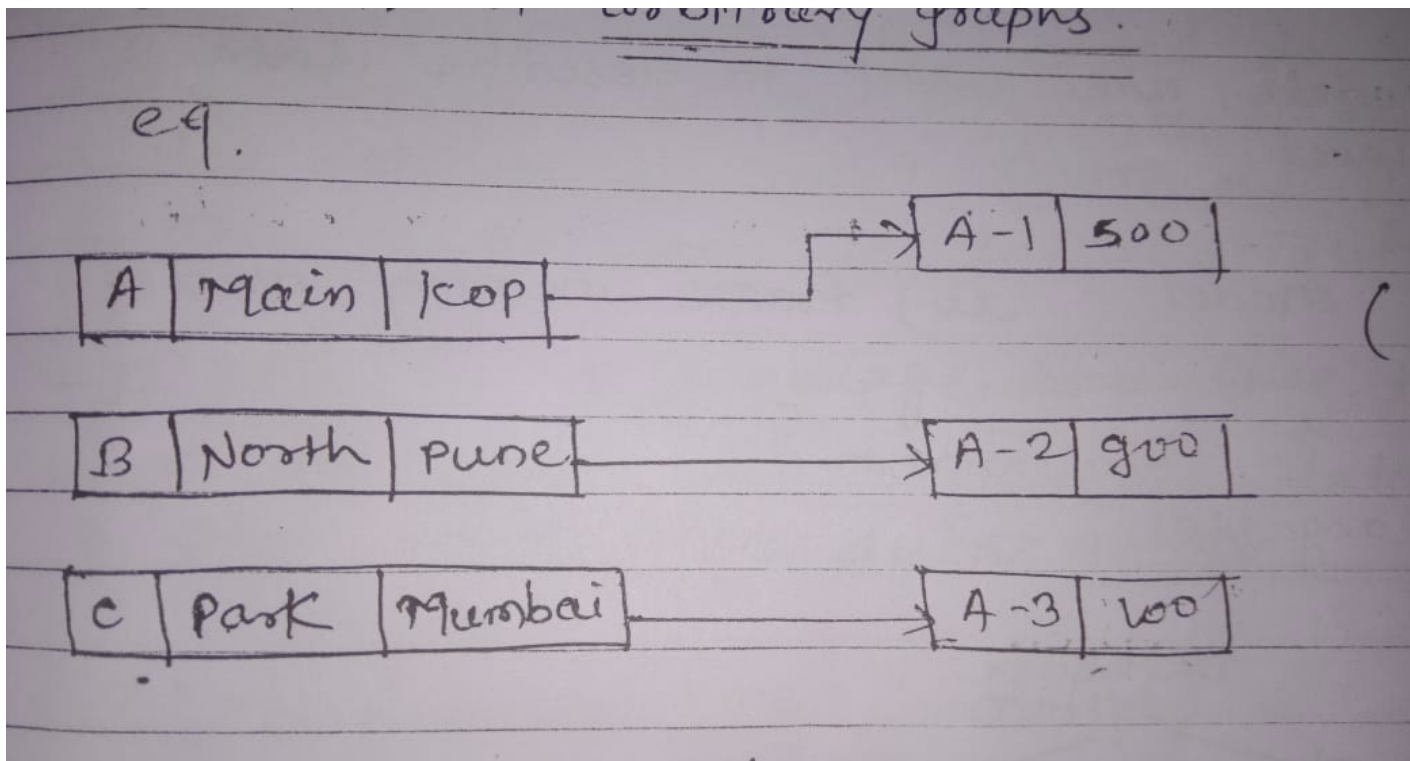 graphs.
eg.
A-1 500
A Main Kop
B North Pune A-2 900
C Park Mumbai A-3 100
(